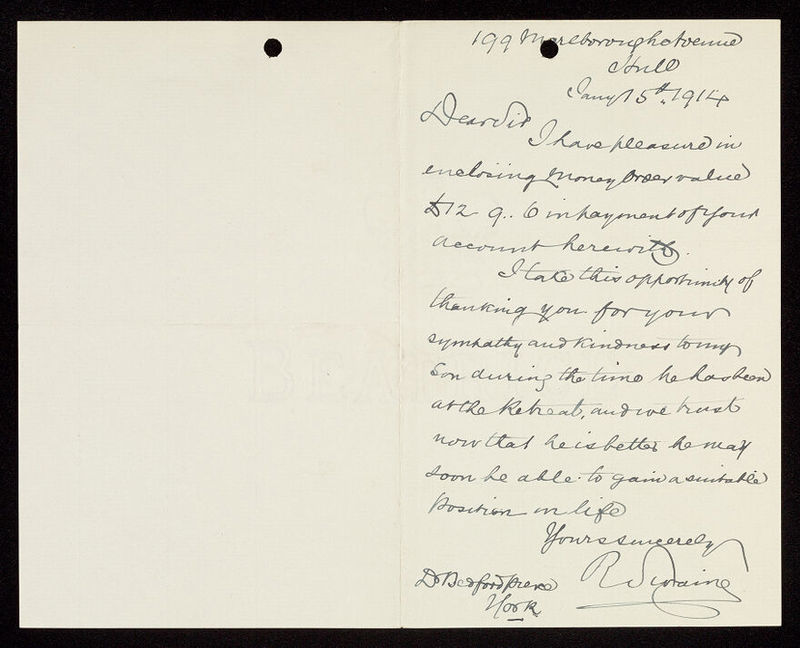 199 Marlborough Avenue
Hull
Jany 15th. 1914
Dear Sir
I have pleasure in
enclosing Money Order value
£12. 9.. 6 in payment of your
account herewith.
I take this opportunity of
thanking you for your
sympathy and kindness to my
Son during the time he has been
at the Retreat, and we trust
now that he is better he may
soon be able to gain a suitable
Position in life
Yours sincerely
R
Dr Bedford Pierce
York